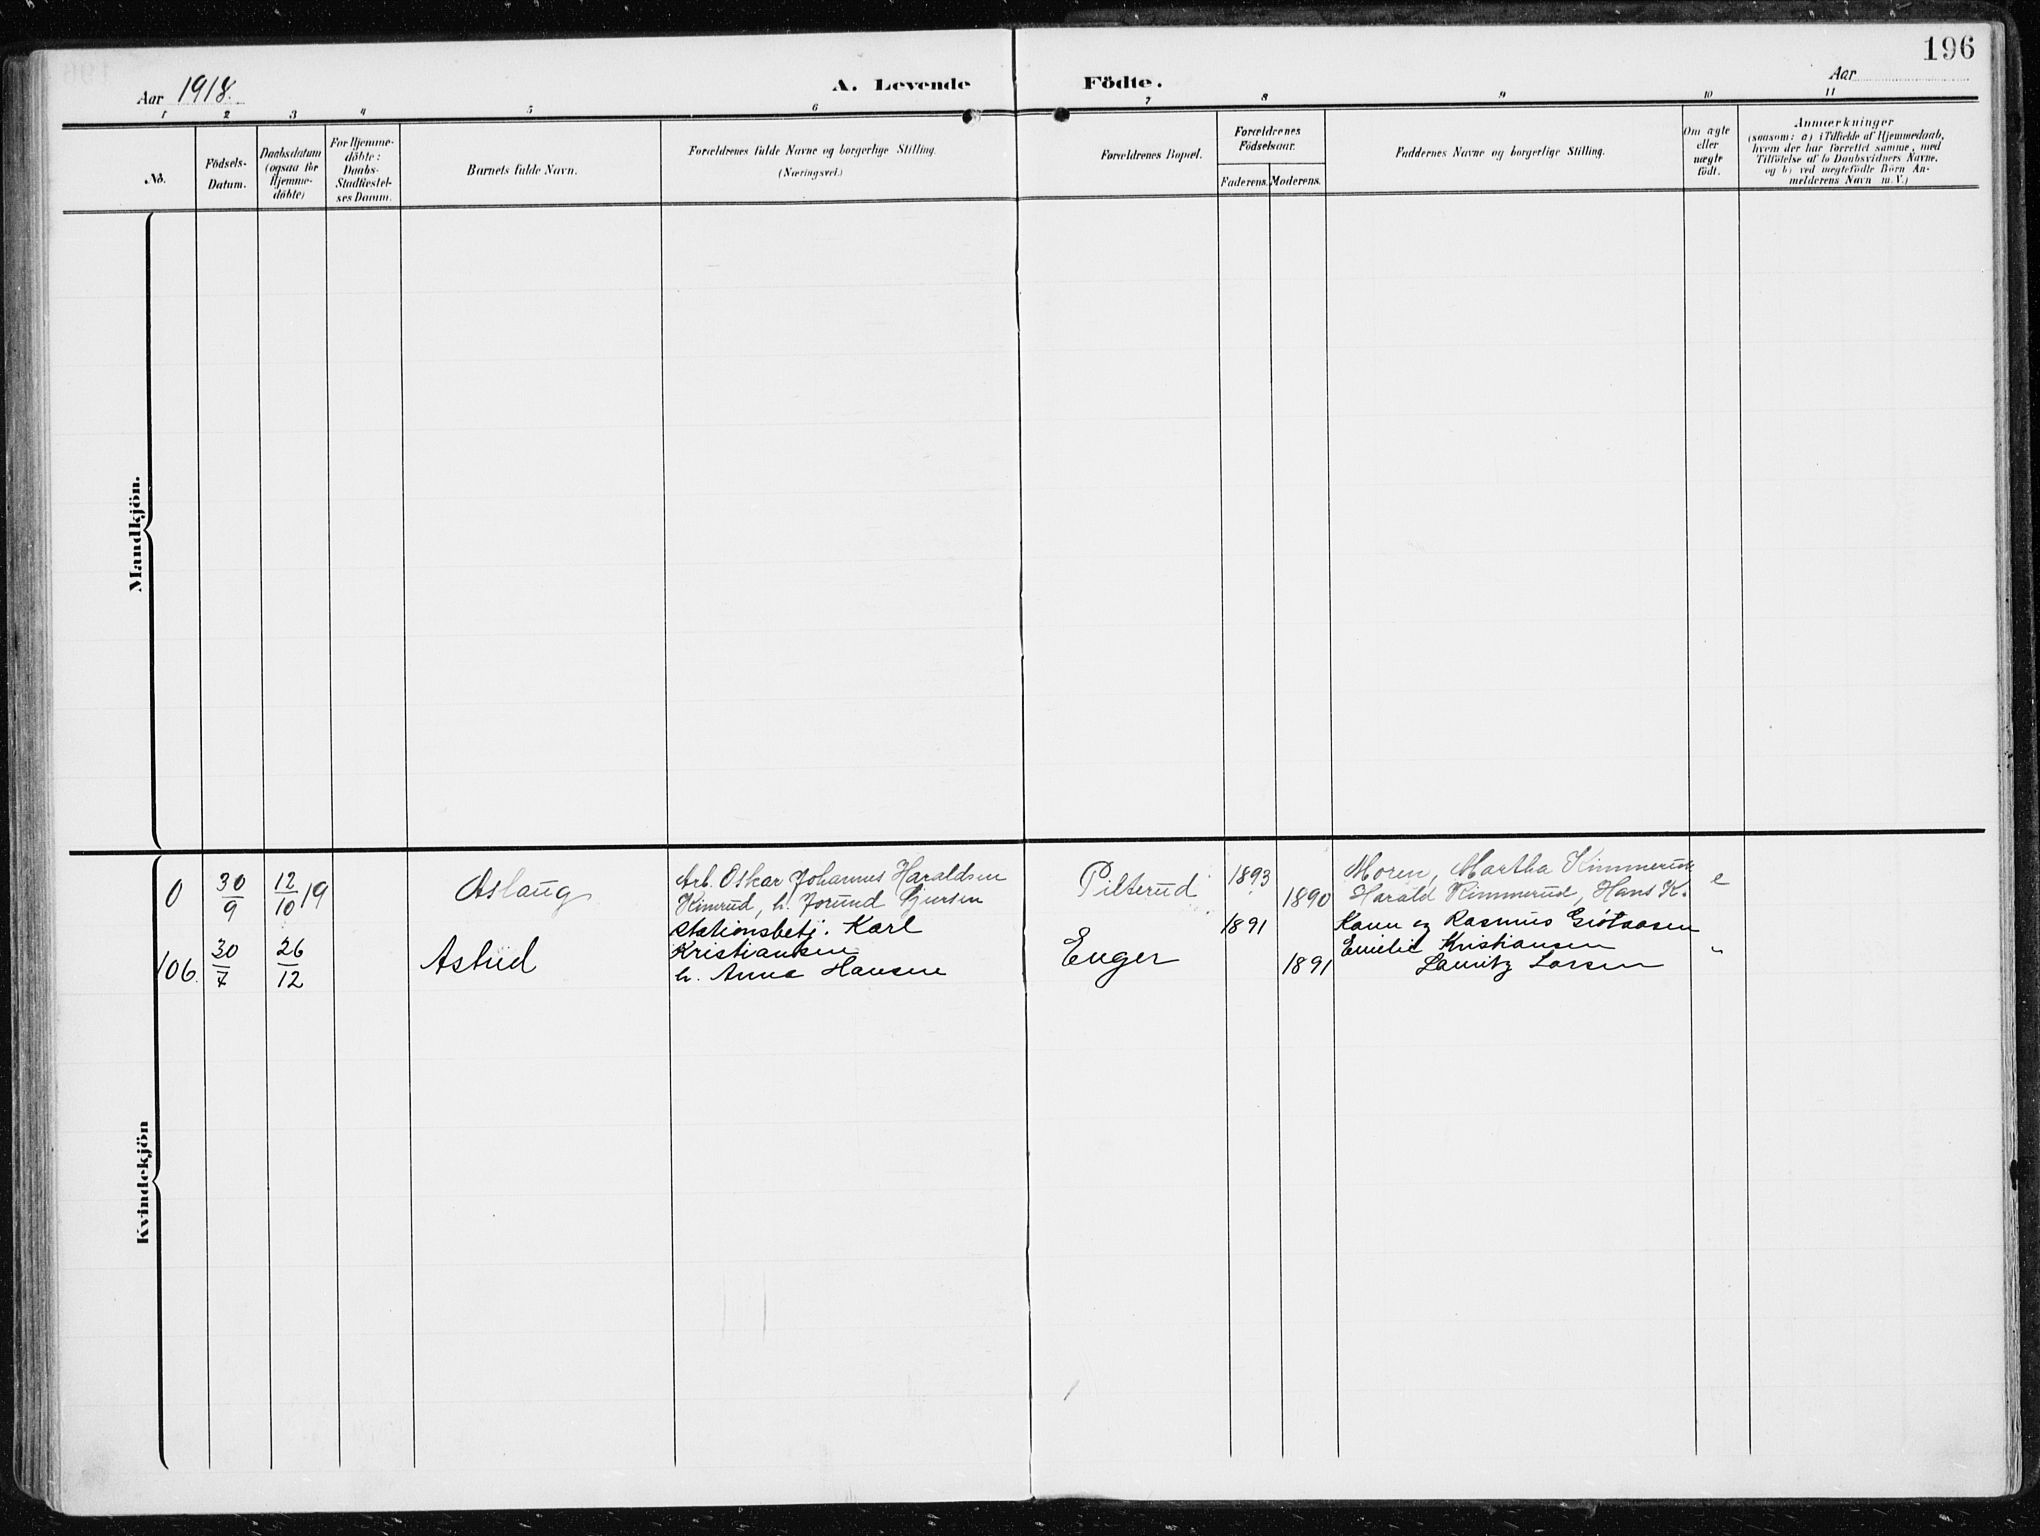 196
Aar 1918.
A. Levende Födte.
Aar
1 2 3 4 5 6 7 8 9 10 11
No.
Födsels-
Datum.
Daabsdatum
(ogsaa for
Hjemme-
döbte)
For Hjemme-
döbte:
Daabs-
Stadfæstel-
ses Datum.
Barnets fulde Navn.
Forældrenes fulde Navne og borgerlige Stilling.
(Næringsvei.)
Forældrenes Bopæl.
Forældrenes
Födselsaar.
Faderens. Moderens.
Faddernes Navne og borgerlige Stilling.
Om ægte
eller
uægte
födt.
Anmærkninger
(saasom: a) i Tilfælde af Hjemmedaab,
hvem der har forrettet samme, med
Tilföielse af to Daabsvidners Navne.
og b) ved uægtefödte Börn An-
melderens Navn m. V.)
Mandkjön.
Kvindekjön
0 30/9 12/10 19 Aslaug
Arb. Oskar Johannes Haraldsen
Kimrud, h. Jorund
Pilterud 1893 1890
Moren, Martha Kimmerud
Harald Kimmerud, Hans K. e
106. 30/7 26/12 Astrid
Stationsbetj. Karl
Kristiansen
h. Anna Hansen
Enger 1891 1891
og Rasmus
Emilie Kristiansen
Lauritz Larsen "